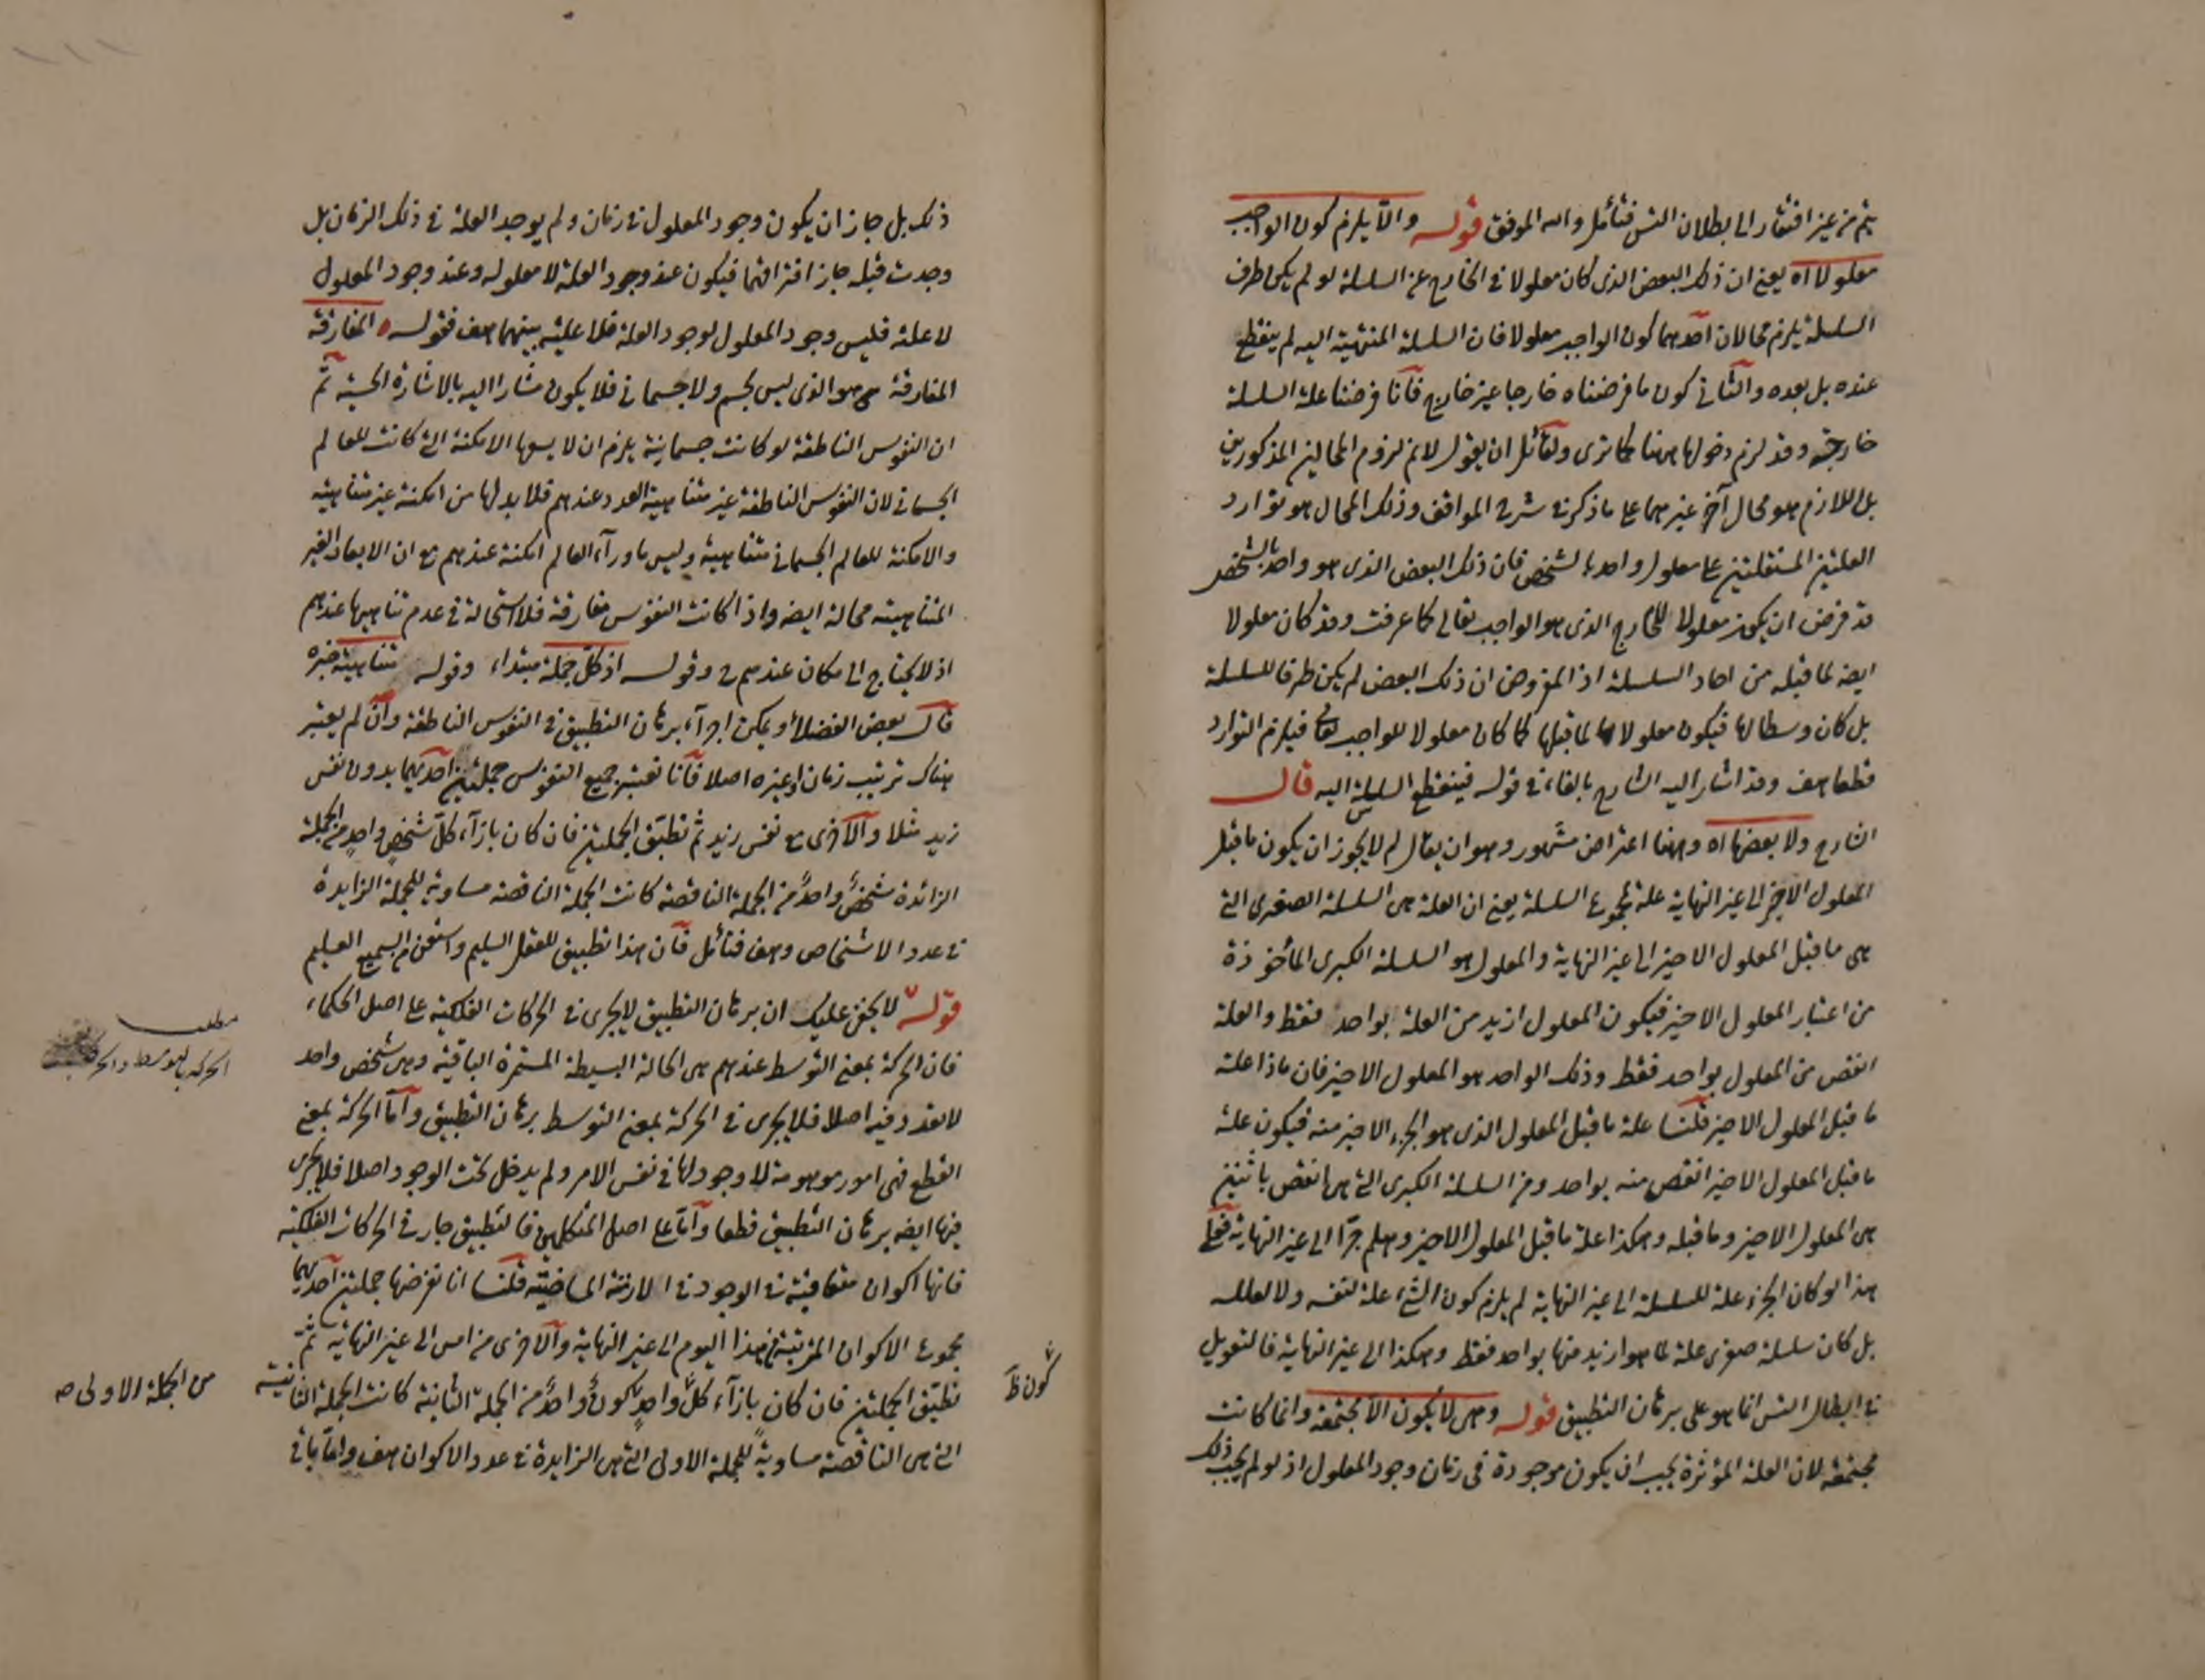 يتم من غير افتقار الى بطلان التس فتأمل والله الموفق قوله والا يلزم كون الواجب
معلولا اه يعنى ان ذلك البعض الذى كان معلولا فى الخارج عن السلسلة لو لم يكن طرف
السلسلة يلزم محالان احدهما كون الواجب معلولا فان السلسلة المنتهية اليه لم ينقطع
عنده بل بعده والثانى كون ما فرضناه خارجا غير خارج فانا فرضنا علة السلسلة
خارجة وقد لزم دخولها ههنا كما ترى ولقائل ان يقول لانم لزوم المحالين المذكورين
بل اللازم هو محال آخر غيرهما على ما ذكر فى شرح المواقف وذلك المحال هو توارد
العلتين المستقلتين على معلول واحد بالشخص فان ذلك البعض الذى هو واحد بالشخص
قد فرض ان يكون معلولا للخارج الذى هو الواجب تعالى كما عرفت وقد كان معلولا
ايضا لما قبله من احاد السلسلة اذ المفروض ان ذلك البعض لم يكن طرفا للسلسلة
بل كان وسطا لها فيكون معلولا لما قبلها كما كان معلولا للواجب تعالى فيلزم التوارد
قطعا هف وقد اشار اليه الشارح بالفاء فى قوله فينقطع السلسلة اليه قال
الشارح ولا بعضها اه وههنا اعتراض مشهور وهو ان يقال لم لا يجوز ان يكون ما قبل
المعلول الاخير الى غير النهاية علة لمجموع السلسلة يعنى ان العلة هى السلسلة الصغرى التى
هى ما قبل المعلول الاخير الى غير النهاية والمعلول هو السلسلة الكبرى المأخوذة
من اعتبار المعلول الاخير فيكون المعلول ازيد من العلة بواحد فقط والعلة
انقص من المعلول بواحد فقط وذلك الواحد هو المعلول الاخير فان ماذا علة
ما قبل المعلول الاخير قلنا علة ما قبل المعلول الذى هو الجزء الاخير منه فيكون علة
ما قبل المعلول الاخير انقص منه بواحد ومن السلسلة الكبرى التى هى انقص باثنين
هى المعلول الاخير وما قبله وهكذا علة ما قبل المعلول الاخير وهلم جرا الى غير النهاية فعلى
هذا لو كان الجزء علة للسلسلة الى غير النهاية لم يلزم كون الشئ علة لنفسه ولا لعلله
بل كان سلسلة صغرى علة لما هو ازيد منها بواحد فقط وهكذا الى غير النهاية فالتعويل
فى ابطال التس انما هو على برهان التطبيق قوله وهى لا يكون الا مجتمعة وانما كانت
مجتمعة لان العلة المؤثرة يجب ان يكون موجودة فى زمان وجود المعلول اذ لو لم يجب ذلك
ذلك بل جاز ان يكون وجود المعلول فى زمان ولم يوجد العلة فى ذلك الزمان بل
وجدت قبله جاز افتراقهما فيكون عند وجود العلة لا معلول وعند وجود المعلول
لا علة فليس وجود المعلول لوجود العلة فلا علية بينهما هف فقوله المفارقة
المفارقة هو الذى ليس بجسم ولا جسمانى فلا يكون مشارا اليه بالاشارة الحسية ثم
ان النفوس الناطقة لو كانت جسمانية يلزم ان لا يسعها الامكنة التى كانت للعالم
الجسمانى لان النفوس الناطقة غير متناهية العدد عندهم فلا بد لها من امكنة غير متناهية
والامكنة للعالم الجسمانى متناهية وليس ما وراء العالم امكنة عندهم مع ان الابعاد الغير
المتناهية محالة ايضا واذا كانت النفوس مفارقة فلا استحالة فى عدم تناهيها عندهم
اذ لا يحتاج الى مكان عندهم وقوله اذ كل جملة مبتداء وقوله متناهية خبره
قال بعض الفضلاء ويمكن اجراء برهان التطبيق فى النفوس الناطقة وان لم يعتبر
هناك ترتيب زمان او غيره اصلا فانا نعتبر جميع النفوس جملتين احديهما بدون نفس
زيد مثلا والاخرى مع نفس زيد ثم نطبق الجملتين فان كان بازاء كل شخص واحد من الجملة
الزائدة شخص واحد من الجملة الناقصة كانت الجملة الناقصة مساوية للجملة الزايدة
فى عدد الاشخاص وهف فتأمل فان هذا تطبيق للعقل السليم واستعن من السميع العليم
قوله لا يخفى عليك ان برهان التطبيق لا يجرى فى الحركات الفلكية على اصل الحكماء
فان الحركة بمعنى التوسط عندهم هى الحالة البسيطة المستمرة الباقية وهى شخص واحد
لا تعدد فيه اصلا فلا يجرى فى الحركة بمعنى التوسط برهان التطبيق واما الحركة بمعنى
القطع فهى امور موهومة لا وجود لها فى نفس الامر ولم يدخل تحت الوجود اصلا فلا يجرى
فيها ايضا برهان التطبيق قطعا واما على اصل المتكلمين فالتطبيق جار فى الحركات الفلكية
فانها اكوان متعاقبة فى الوجود فى الازمنة الماضية قلنا انا نفرضها جملتين احديهما
مجموع الاكوان المترتبة من هذا اليوم الى غير النهاية والاخرى من امس الى غير النهاية ثم
نطبق الجملتين فان كان بازاء كل واحد كون واحد من الجملة الثانية كانت الجملة الثانية
التى هى الناقصة مساوية للجملة الاولى التى هى الزايدة فى عدد الاكوان هف واما باقى
مطلب
الحركة بالتوسط والحركة
من الجملة الاولى صح
كون ظ